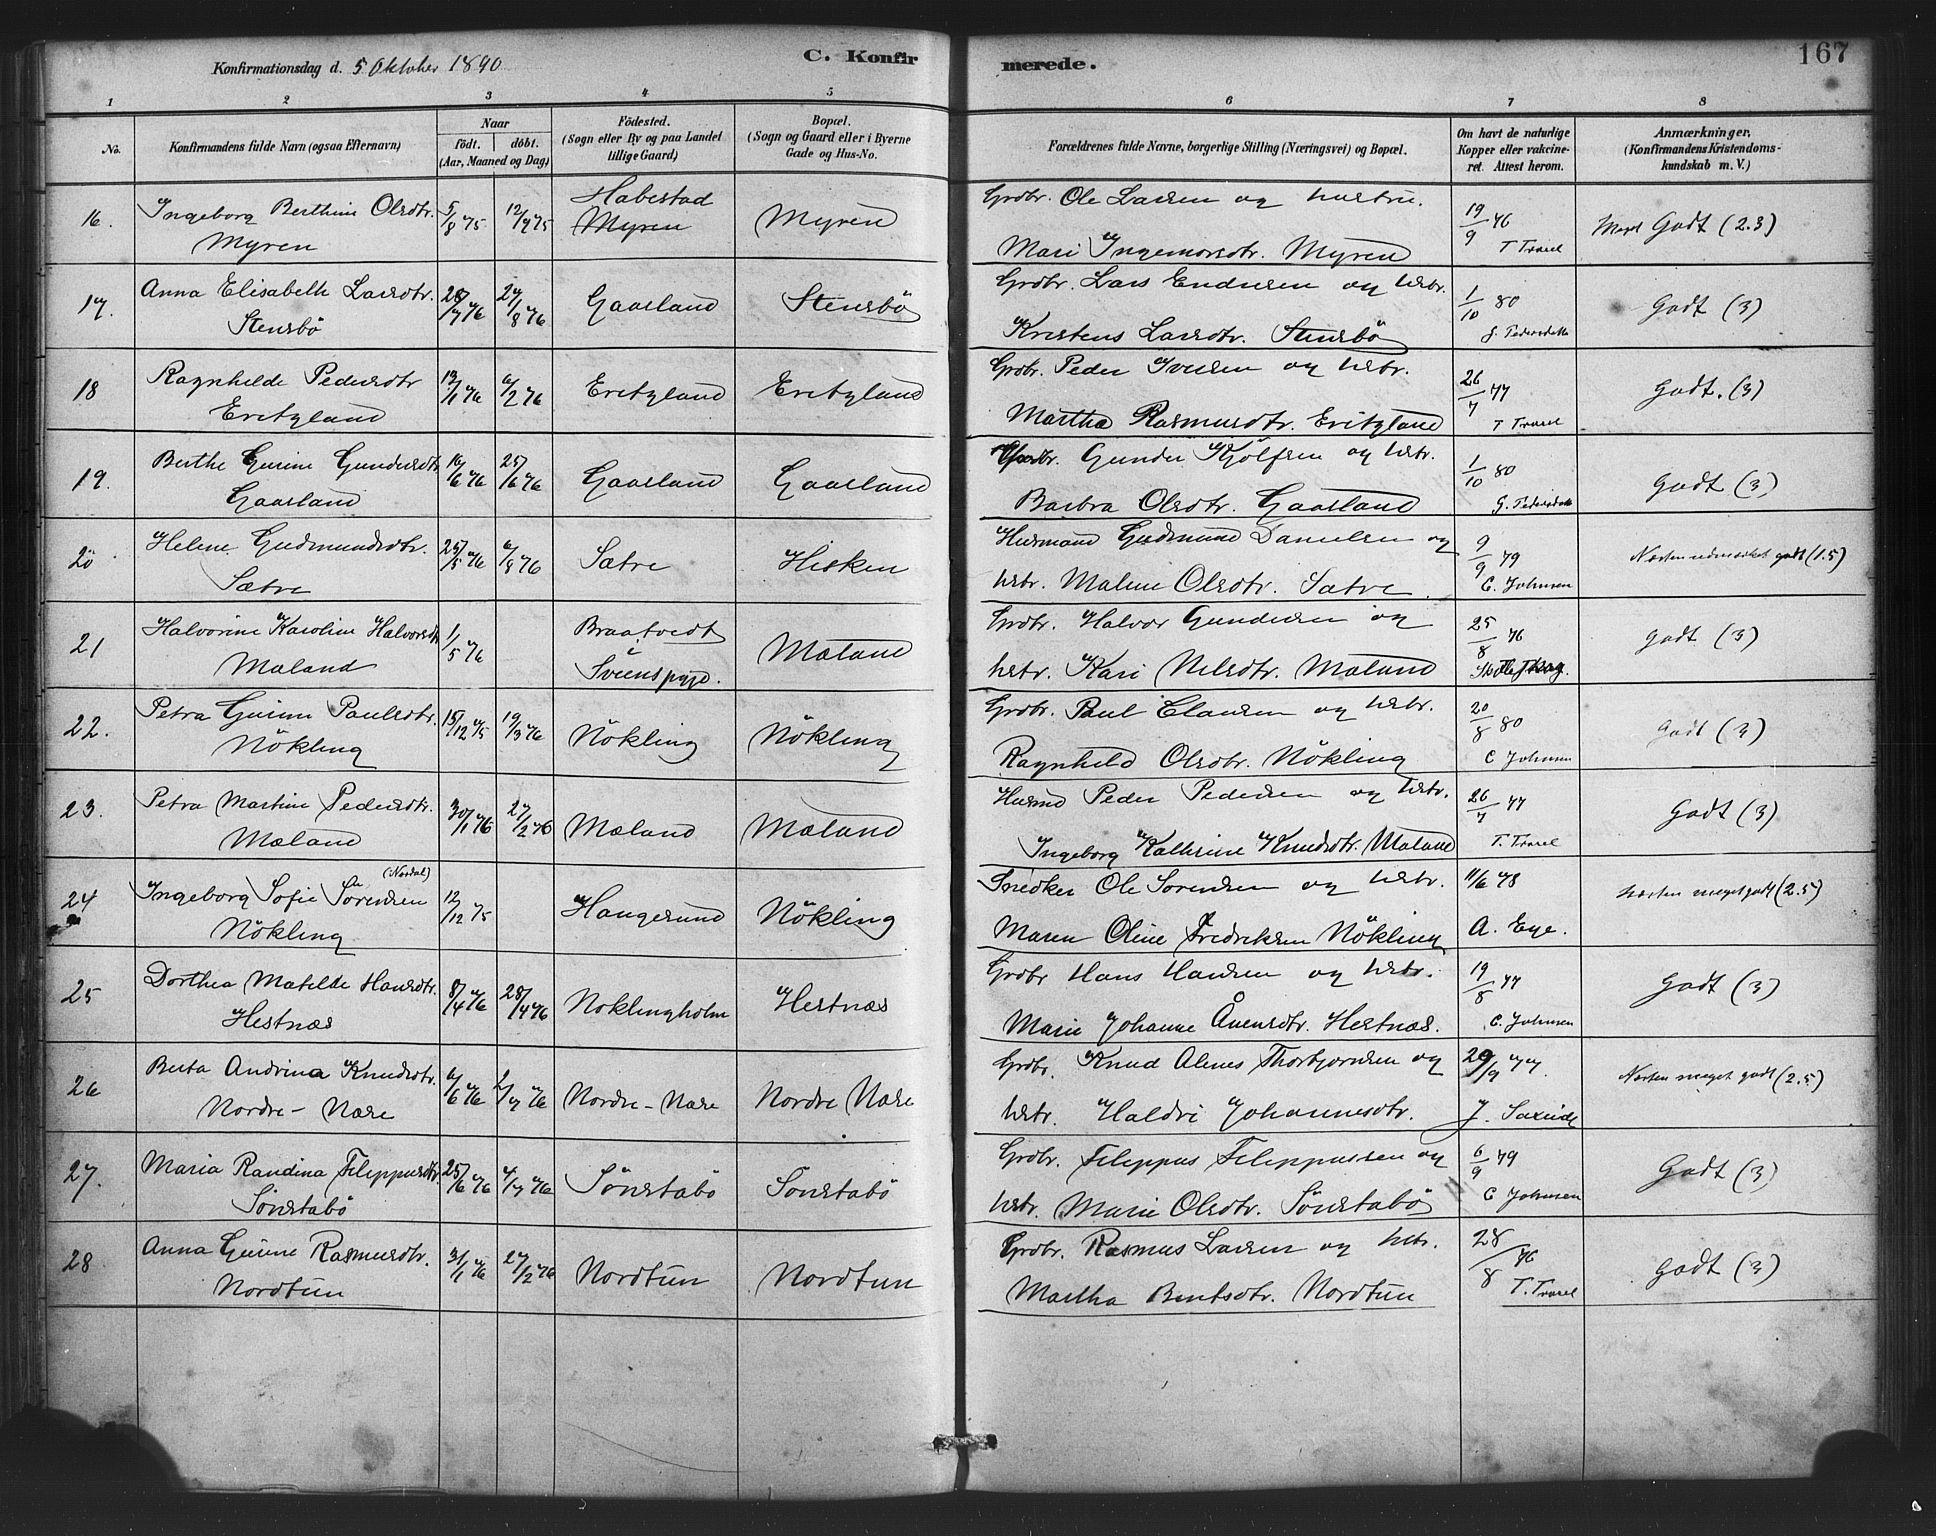 Konfirmationsdag d. 5 Oktober 1890
C. Konfir merede.
167
1 2 3 4 5 6 7 8
No.
Konfirmandens fulde Navn (ogsaa Efternavn)
Naar
födt. döbt.
(Aar, Maaned og Dag)
Födested.
(Sogn eller By og paa Landet
tillige Gaard)
Bopæl.
(Sogn og Gaard eller i Byerne
Gade og Hus-No.
Forældrenes fulde Navne, borgerlige Stilling (Næringsvei) og Bopæl.
Om havt de naturlige
Kopper eller vakcine-
ret. Attest herom.
Anmærkninger.
(Konfirmandens Kristendoms-
kundskab m. V.)
16. Ingeborg Berthine Olsdtr. 5/8 75 12/9 75 Habestad Myren Grdbr. Ole Larsen og hustru. 19/9 76 Godt (2.3)
Myren Myren Mari Ingemorsdtr. Myren T Traael
17. Anna Elisabeth Larsdtr. 28/7 76 27/8 76 Gaasland Stensbö Grdbr. Lars Endresen og hstr. 1/10 80 Godt (3)
Stensbö Kristens Larsdtr. Stensbö G. Pedersdatt
18 Ragnhilde Pedersdtr 19/1 76 6/2 76 Eritzland Eritzland Grdbr. Peder Iversen og hstr. 26/7 77 Godt. (3)
Eritzland Martha Rasmusdtr. Eritzland T Traael
19. Berthe Gurine Gundersdtr 16/6 76 25/6 76 Gaasland Gaasland Grdbr. Gunder Kjölfsen og hstr. 1/10 80 Godt (3)
Gaasland Barbra Olsdtr. Gaasland G. Pedersdatt
20 Helene Gudmundsdtr. 25/5 76 6/8 76 Sætre Hisken Husmand Gudmund Danielsen og 9/9 79 Næsten udmærket godt (1.5)
Sætre hstr. Maline Olsdtr. Sætre. C. Johnsen
21 Halvorine Karoline Halvorsdtr 1/5 76 Braatvedt Mæland Grdbr. Halvor Gundersen og 25/8 76 Godt (3)
Mæland i Sveens pgjd. hstr. Kari Nilsdtr. Mæland
22. Petra Gurine Paulsdtr. 15/12 75 19/3 76 Nökling Nökling Grdbr. Paul Clausen og hstr. 20/8 80 Godt (3)
Nökling Ragnhild Olsdtr. Nökling C Johnsen
23. Petra Martine Pedersdtr. 30/1 76 27/2 76 Mæland Mæland Husmd Peder Pedersen og hstr. 26/7 77 Godt (3)
Mæland Ingeborg Kathrine Knudsdtr. Mæland T. Traael
24 Ingeborg Sofie Sörensen (Nordal) 12/12 75 Haugesund Nökling Snedker Ole Sorensen og hstr. 11/6 78 Næsten meget godt (2.5)
Nökling Maren Oline Fredriksen Nökling A. Ege.
25 Dorthea Matilde Hansdtr. 8/4 76 28/4 76 Noklingholm Hestnæs Grdbr Hans Hansen og hstr. 19/8 77 Godt (3)
Hestnæs Marie Johanne Ånensdtr. Hestnæs. C. Johnsen
26 Berta Andrina Knudsdtr. 6/6 76 2/7 76 Nordre-Næse Nordre Næse Grdbr. Knud Alines Thorbjornsen og 29/9 77. Næsten meget godt (2.5)
Nordre-Næse hstr. Haldri Johannesdtr.
27. Maria Randina Filippusdtr 25/6 76 4/7 76 Sönstabö Sönstabö Grdbr. Filippus Filippussen og 6/9 79 Godt (3)
Sönstabö hstr. Marie Olsdtr. Sönstabö C Johnsen
28 Anna Gurine Rasmusdtr. 31/1 76 27/2 76 Nordtun Nordtun Grdbr. Rasmus Larsen og hstr. 28/8 76 Godt (3)
Nordtun Martha Bentsdtr. Nordtun T. Traael